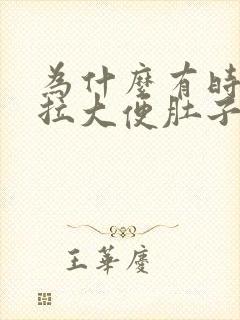 為什麼有時
拉大便肚子
王華慶